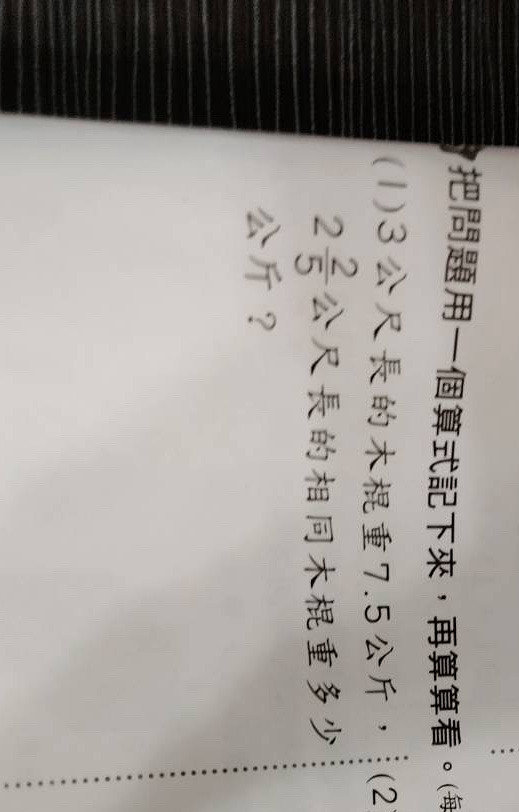 把問題用一個算式記下來，再算算看。(每
(1)3公尺長的木棍重7.5公斤，
2 2/5公尺長的相同木棍重多少
公斤？
(2